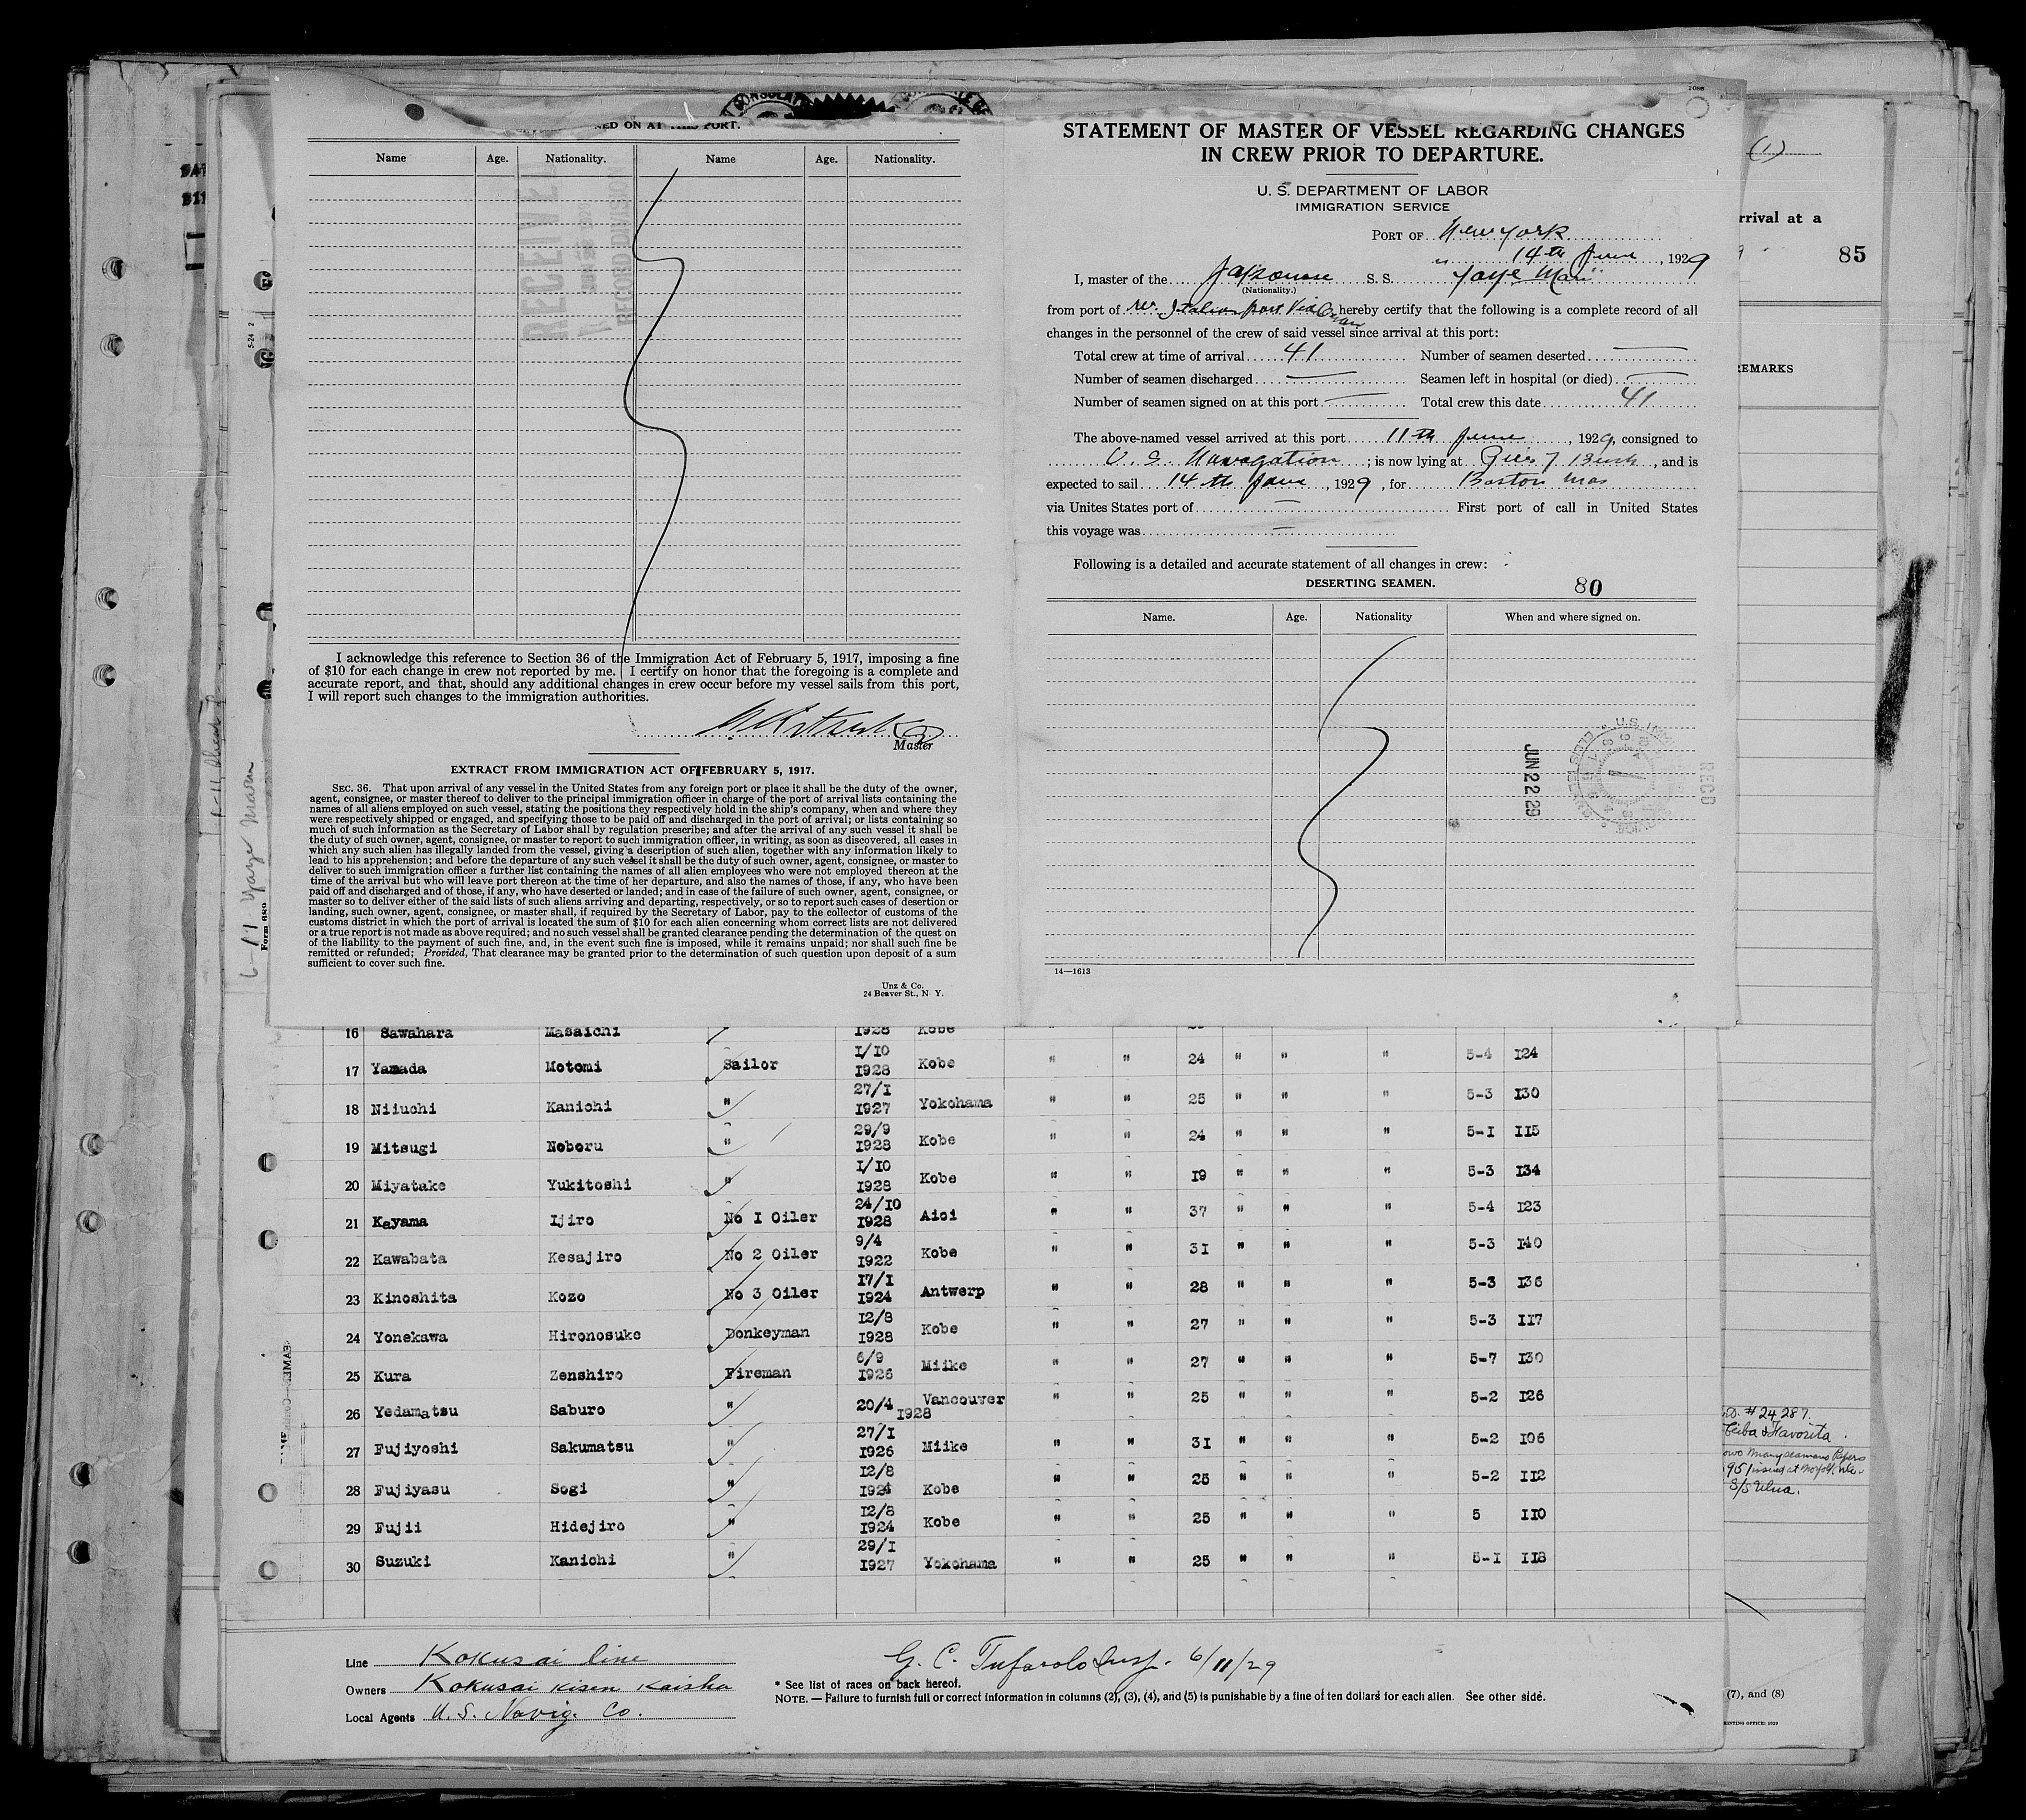 NED ON AT THIS PORT.
Name Age. Nationality. Name Age. Nationality.
RECEIVED
RECORD DIVISION
I acknowledge this reference to Section 36 of the Immigration Act of February 5, 1917, imposing a fine
of $10 for each change in crew not reported by me. I certify on honor that the foregoing is a complete and
accurate report, and that, should any additional changes in crew occur before my vessel sails from this port,
I will report such changes to the immigration authorities.
Master
EXTRACT FROM IMMIGRATION ACT OF FEBRUARY 5, 1917.
SEC. 36. That upon arrival of any vessel in the United States from any foreign port or place it shall be the duty of the owner,
agent, consignee, or master thereof to deliver to the principal immigration officer in charge of the port of arrival lists containing the
names of all aliens employed on such vessel, stating the positions they respectively hold in the ship's company, when and where they
were respectively shipped or engaged, and specifying those to be paid off and discharged in the port of arrival; or lists containing so
much of such information as the Secretary of Labor shall by regulation prescribe; and after the arrival of any such vessel it shall be
the duty of such owner, agent, consignee, or master to report to such immigration officer, in writing, as soon as discovered, all cases in
which any such alien has illegally landed from the vessel, giving a description of such alien, together with any information likely to
lead to his apprehension; and before the departure of any such vessel it shall be the duty of such owner, agent, consignee, or master to
deliver to such immigration officer a further list containing the names of all alien employees who were not employed thereon at the
time of the arrival but who will leave port thereon at the time of her departure, and also the names of those, if any, who have been
paid off and discharged and of those, if any, who have deserted or landed; and in case of the failure of such owner, agent, consignee, or
master so to deliver either of the said lists of such aliens arriving and departing, respectively, or so to report such cases of desertion or
landing, such owner, agent, consignee, or master shall, if required by the Secretary of Labor, pay to the collector of customs of the
customs district in which the port of arrival is located the sum of $10 for each alien concerning whom correct lists are not delivered
or a true report is not made as above required; and no such vessel shall be granted clearance pending the determination of the quest on
of the liability to the payment of such fine, and, in the event such fine is imposed, while it remains unpaid; nor shall such fine be
remitted or refunded; Provided, That clearance may be granted prior to the determination of such question upon deposit of a sum
sufficient to cover such fine.
Unz & Co.
24 Beaver St., N Y.
STATEMENT OF MASTER OF VESSEL REGARDING CHANGES
IN CREW PRIOR TO DEPARTURE.
U. S. DEPARTMENT OF LABOR
IMMIGRATION SERVICE
PORT OF New York
14th June, 1929
I, master of the Japanese S. S. Yaye Maru
(Nationality.)
from port of Italian port via Oran hereby certify that the following is a complete record of all
changes in the personnel of the crew of said vessel since arrival at this port:
Total crew at time of arrival 41 Number of seamen deserted —
Number of seamen discharged — Seamen left in hospital (or died) —
Number of seamen signed on at this port — Total crew this date 41
The above-named vessel arrived at this port 11th June, 1929, consigned to
U. S. Navagation; is now lying at Pier 7 Bush, and is
expected to sail 14th June, 1929, for Boston Mas
via Unites States port of — First port of call in United States
this voyage was —
Following is a detailed and accurate statement of all changes in crew:
DESERTING SEAMEN. 80
Name. Age. Nationality When and where signed on.
JUN 22 29
RECD
14—1613
(1)
rrival at a
85
REMARKS
6-11 Yaye Maru
16 Sawahara Masaichi 1928 Kobe
17 Yamada Motomi Sailor 1/10 1928 Kobe " " 24 " " " 5-4 124
18 Niiuchi Kanichi " 27/1 1927 Yokohama " " 25 " " " 5-3 130
19 Mitsugi Noboru " 29/9 1928 Kobe " " 24 " " " 5-1 115
20 Miyatake Yukitoshi " 1/10 1928 Kobe " " 19 " " " 5-3 134
21 Kayama Ijiro No 1 Oiler 24/10 1928 Aioi " " 37 " " " 5-4 123
22 Kawabata Kesajiro No 2 Oiler 9/4 1922 Kobe " " 31 " " " 5-3 140
23 Kinoshita Kozo No 3 Oiler 17/1 1924 Antwerp " " 28 " " " 5-3 136
24 Yonekawa Hironosuke Donkeyman 12/8 1928 Kobe " " 27 " " " 5-3 117
25 Kura Zenshiro Fireman 6/9 1926 Miike " " 27 " " " 5-7 130
26 Yedamatsu Saburo " 20/4 1928 Vancouver " " 25 " " " 5-2 126
27 Fujiyoshi Sakumatsu " 27/1 1926 Miike " " 31 " " " 5-2 106
28 Fujiyasu Sogi " 12/8 1924 Kobe " " 25 " " " 5-2 112
29 Fujii Hidejiro " 12/8 1924 Kobe " " 25 " " " 5 110
30 Suzuki Kanichi " 29/1 1927 Yokohama " " 25 " " " 5-1 118
# 24287.
Ceiba & Favorita
S/S Ulua.
Line Kokusai line
Owners Kokusai Kisen Kaisha
Local Agents U. S. Navig. Co.
G. C. Tufarolo Insp. 6/11/29
* See list of races on back hereof.
NOTE.—Failure to furnish full or correct information in columns (2), (3), (4), and (5) is punishable by a fine of ten dollars for each alien. See other side.
(7), and (8)